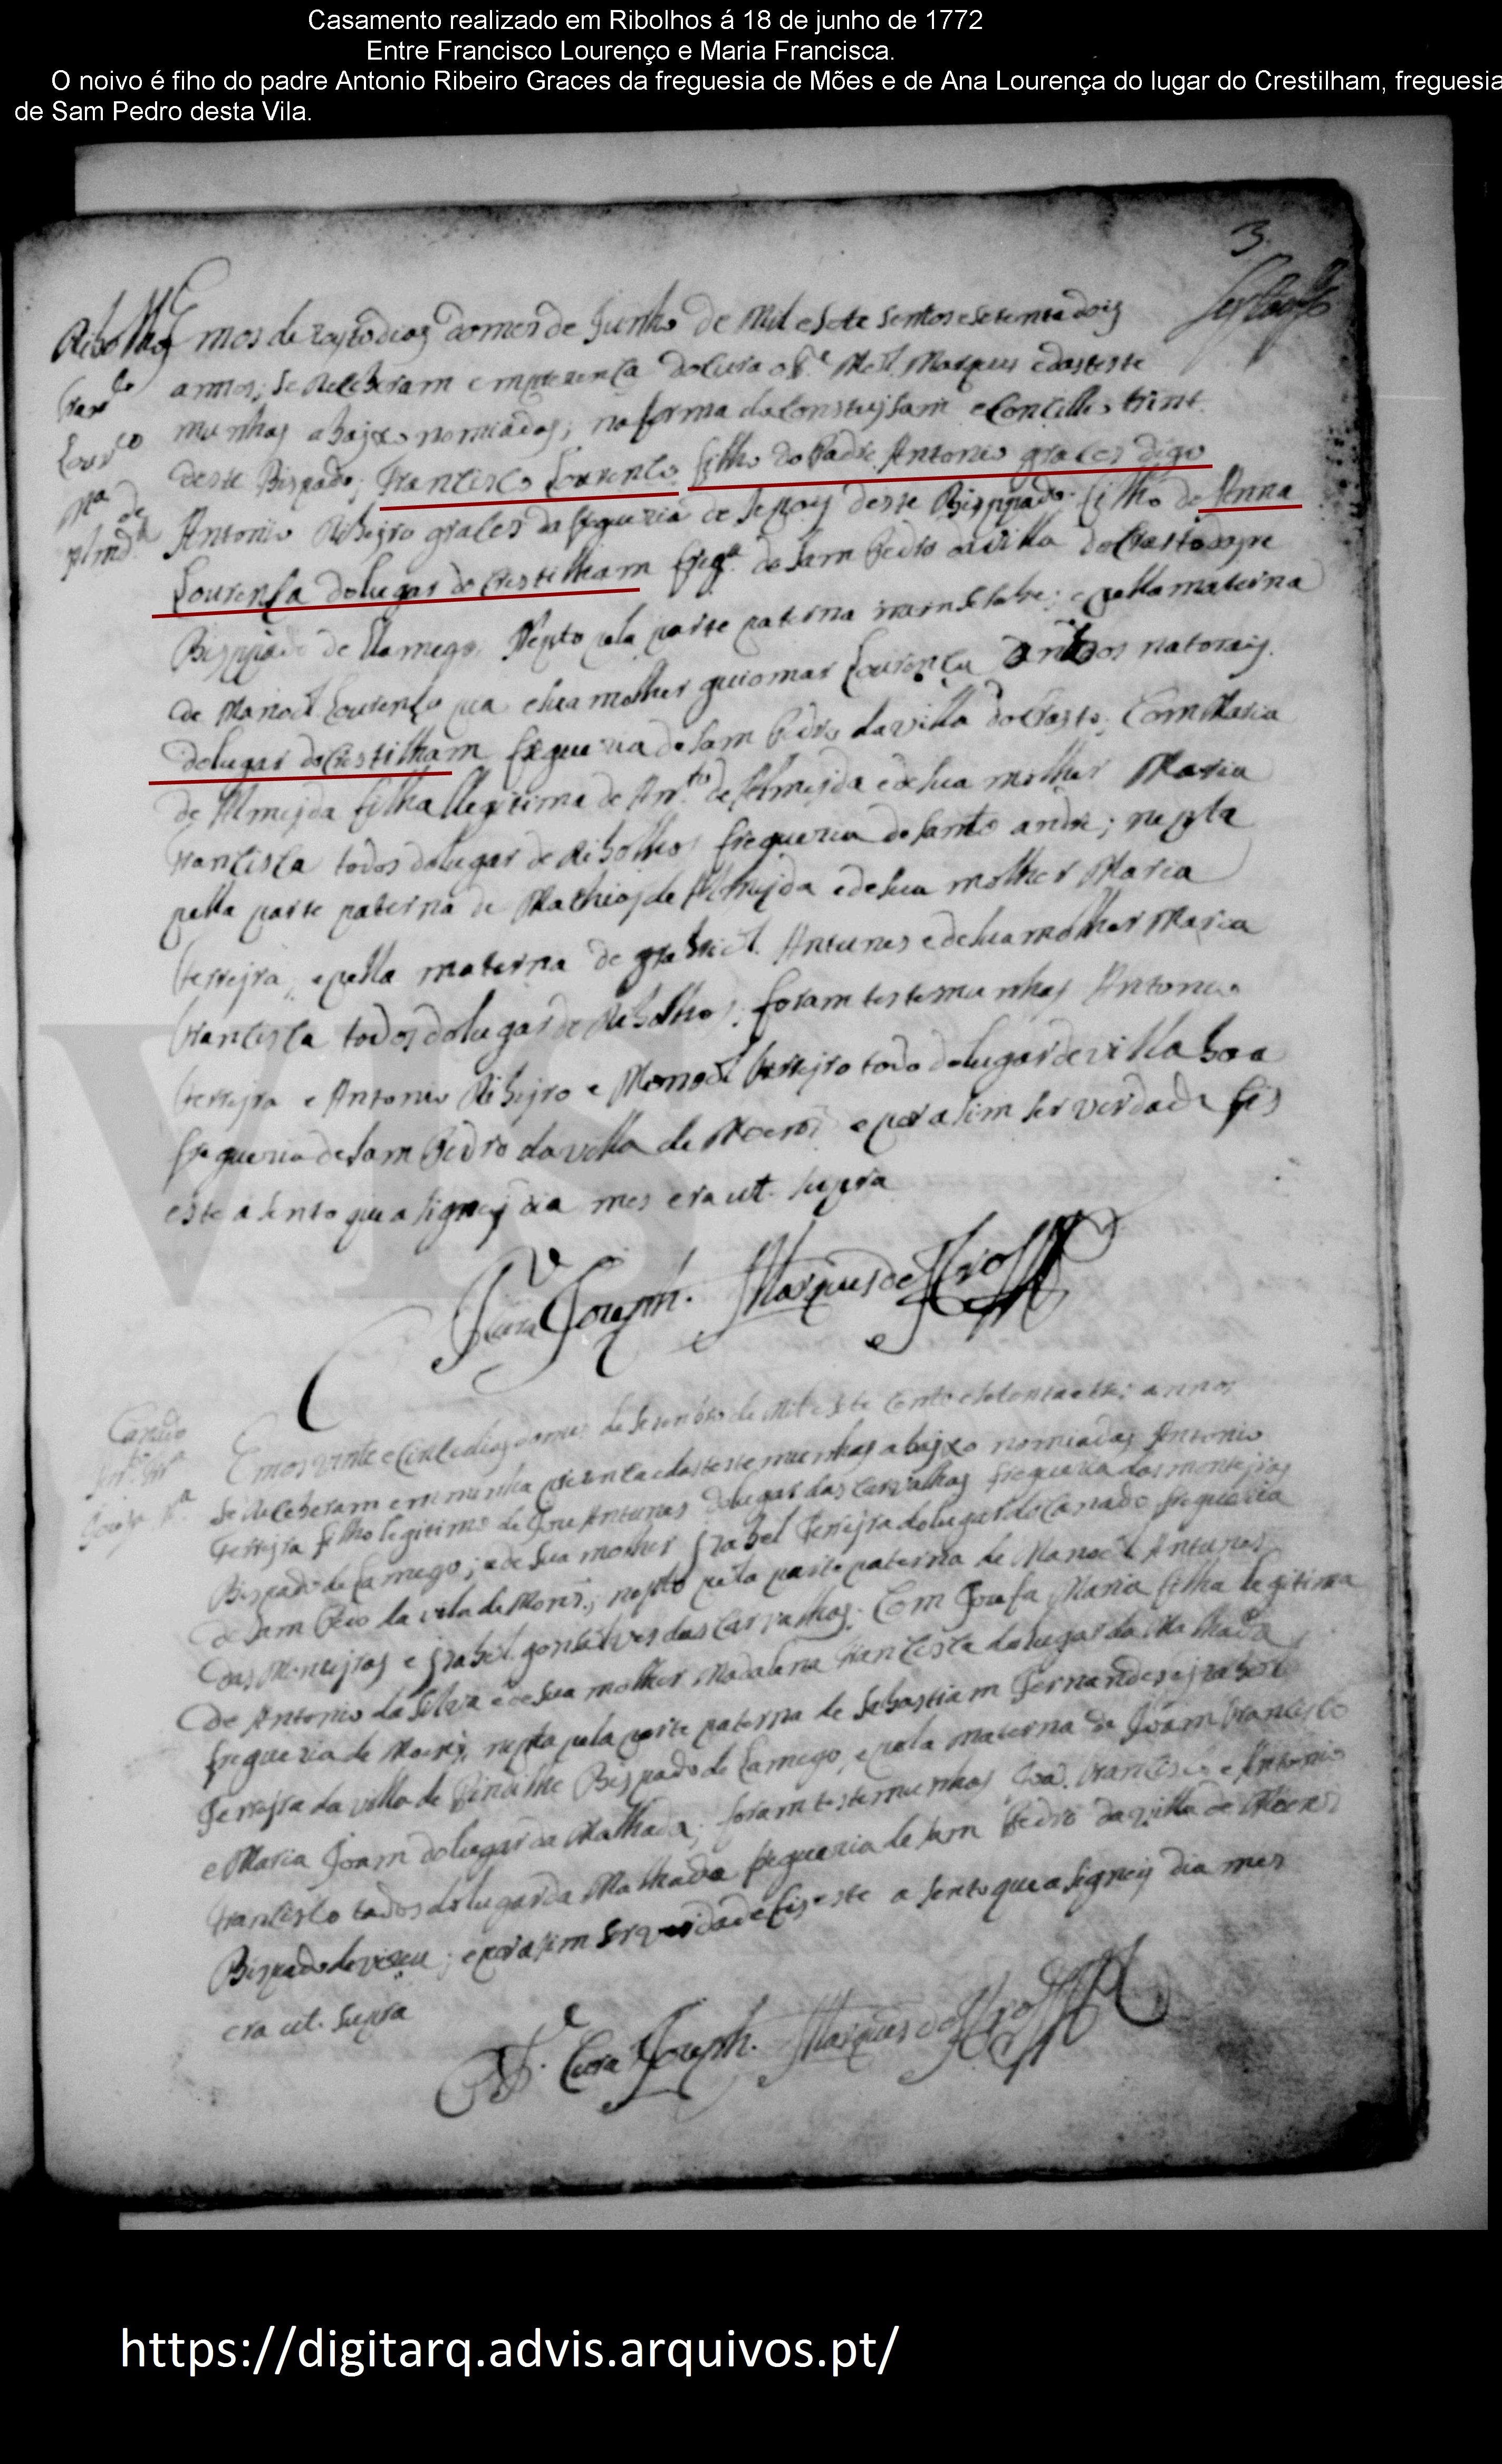 Casamento realizado em Ribolhos á 18 de junho de 1772
Entre Francisco Lourenço e Maria Francisca.
O noivo é fiho do padre Antonio Ribeiro Graces da freguesia de Mões e de Ana Lourença do lugar do Crestilham, freguesia
de Sam Pedro desta Vila.
3.
Ribolhos
mos de zoyto dias do mes de Junho de Mil e sete sentos e setenta e dois
annos; se Receberam em prezença do Cura o P.e Marques e das teste
munhas abajxo nomiadas; na forma da Constujsam e Concilio trint.
deste Bispado; Francisco Lourenco filho do Padre Antonio graces digo
Antonio Ribejro graces da freguezia de deste Bisppado filho de Anna
Lourença do lugar do Crestilham freg.a de Sam Pedro da villa do Crasto
Bisppado de Llamego. Nepto pela parte paterna nam se sabe; e pella materna
de Manoel Lourenço e sua molher guiomar Lourença natorais
do lugar do Crestilham freguezia de Sam Pedro da villa do Crasto; Com Maria
de Almejda filha llegitima de Ant.o de Almejda e de sua molher Maria
Francisca todos do lugar de Ribolhos freguezia de Santo andre; nepta
pella parte paterna de Mathias de Almejda e de sua molher Maria
Ferrejra; e pella materna de grabiel Antunes e de sua molher Maria
Francisca todos do lugar de Ribolhos; foram testemunhas Antonio
Ferrejra e Antonio Ribejro e Manoel Ferrejro todo do lugar de villa boa
freguezia de Sam Pedro da villa de Moens e por asim ser verdade fis
este a sento que a signej dia mes era ut supra
Cura Joseph Marques de
Canado
Emos vinte e Cinco dias do mes de de Mil e sete Cento e setenta e annos
se Receberam em minha prezenca e das testemunhas abajxo nomiadas Antonio
Ferrejra filho legitimo de Antunes do lugar das Carvalhas freguezia das montejras
Bispado de Lamego; e de sua molher Izabel Ferrejra do lugar do Canado freguezia
de Sam Pedro da vila de Moens; nepto pela parte paterna de Manoel Antunes
das Montejras e Izabel gonsalves das Carvalhas; Com Josefa Maria filha legitima
de Antonio da Silva e de sua molher Madalena Francisca do lugar da Malhada
freguezia de Moens, nepta pela parte paterna de Sebastiam Fernandes e Izabel
Ferrejra da villa de Pindilhe Bispado de Lamego, e pela materna de Joam Francisco
e Maria Joam do lugar da Malhada; foram testemunhas Joam Francisco e Antonio
Francisco todos do lugar da Malhada freguezia de Sam Pedro da villa de Moens
Bispado de viseu; e por asim ser verdade fis este a sento que a signej dia mes
era ut supra
Cura Joseph Marques de
https://digitarq.advis.arquivos.pt/